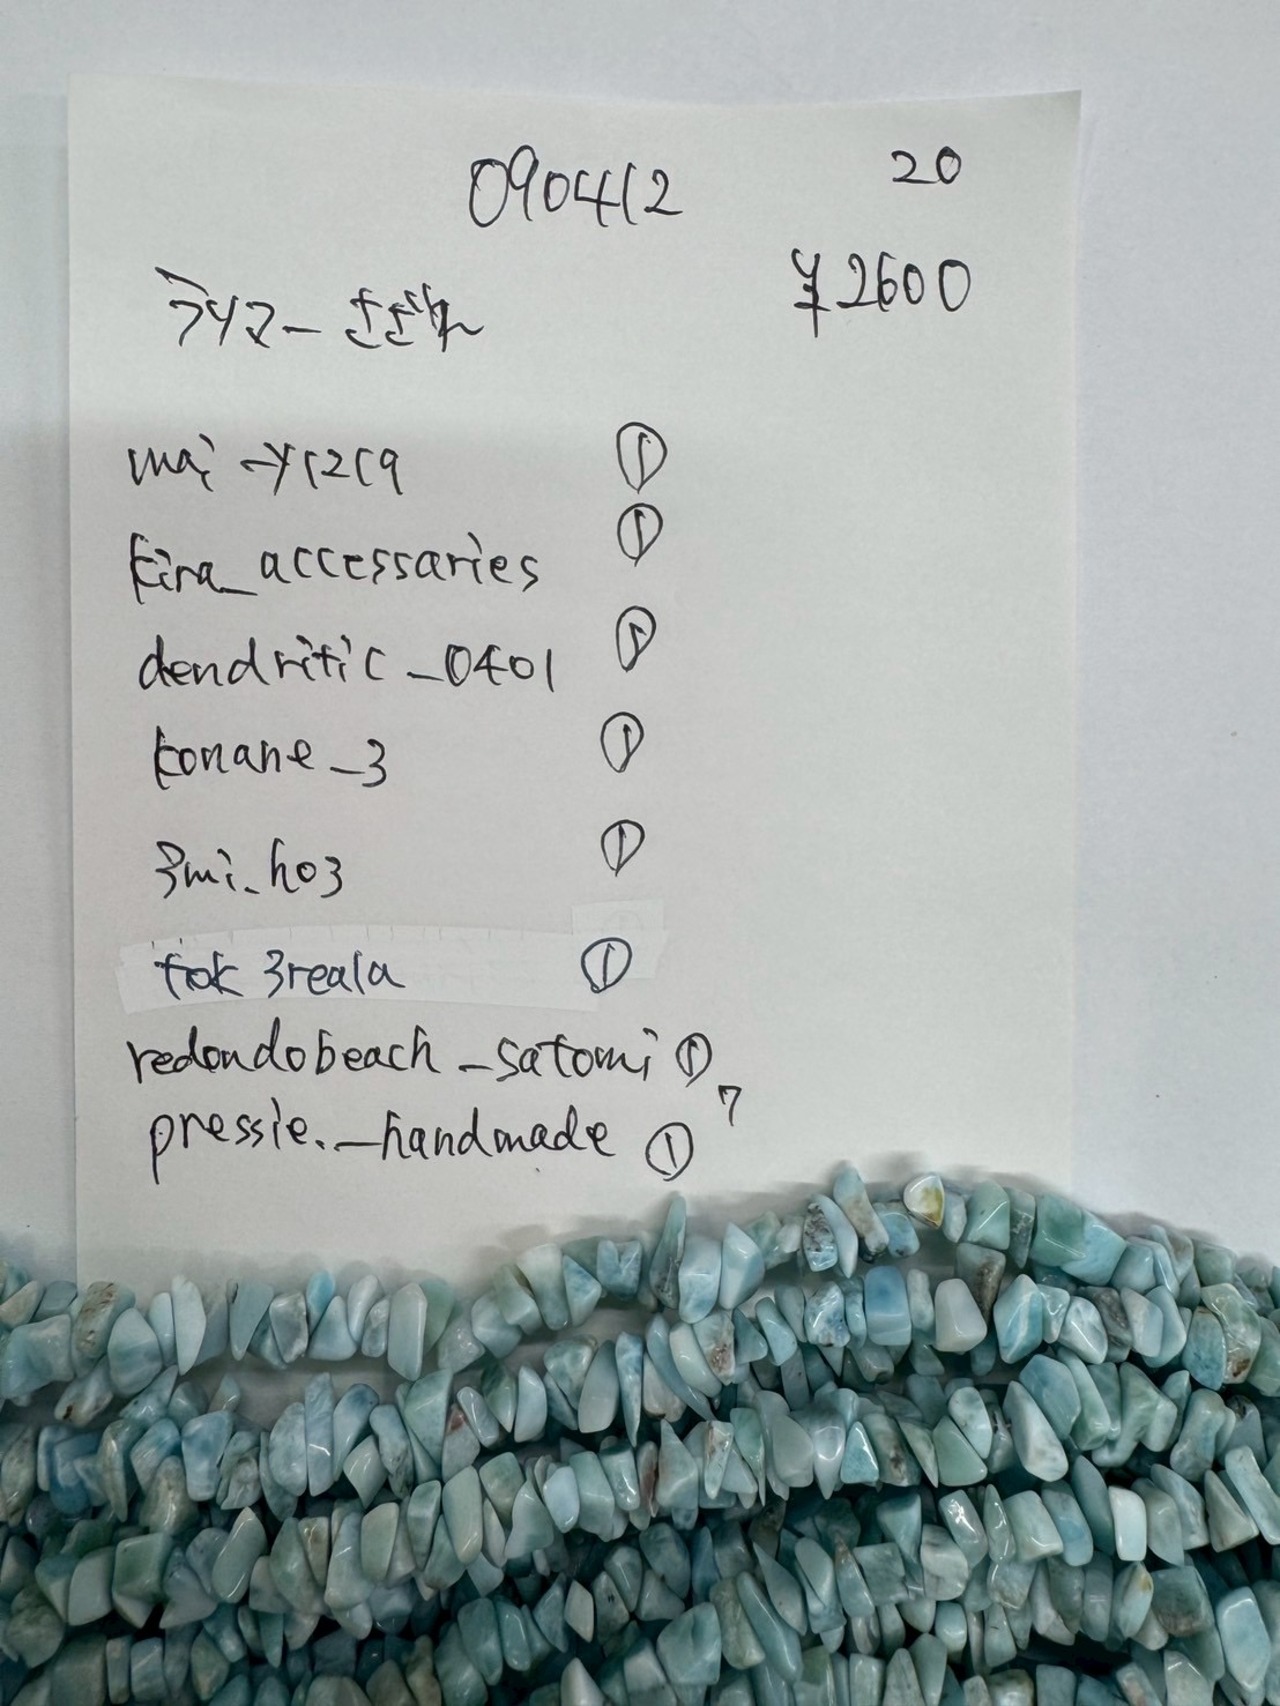 090412 20
¥2600
ラリマーさざれ
mai-y1219 ①
kira_accessaries ①
dendritic_0401 ①
konane_3 ①
3mi_ho3 ①
tok 3reala ①
redondobeach_satomi ①
7
pressie._handmade ①